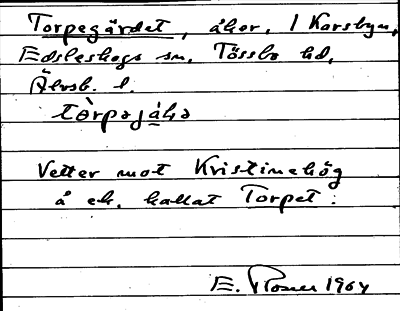 Torpegärdet, åker, 1 Korsbyn,
Edsleskogs sn, Tössbo hd,
Älvsb. l.
Vetter mot Kristinehög
å ek. kallat Torpet.
E. Rosner 1964